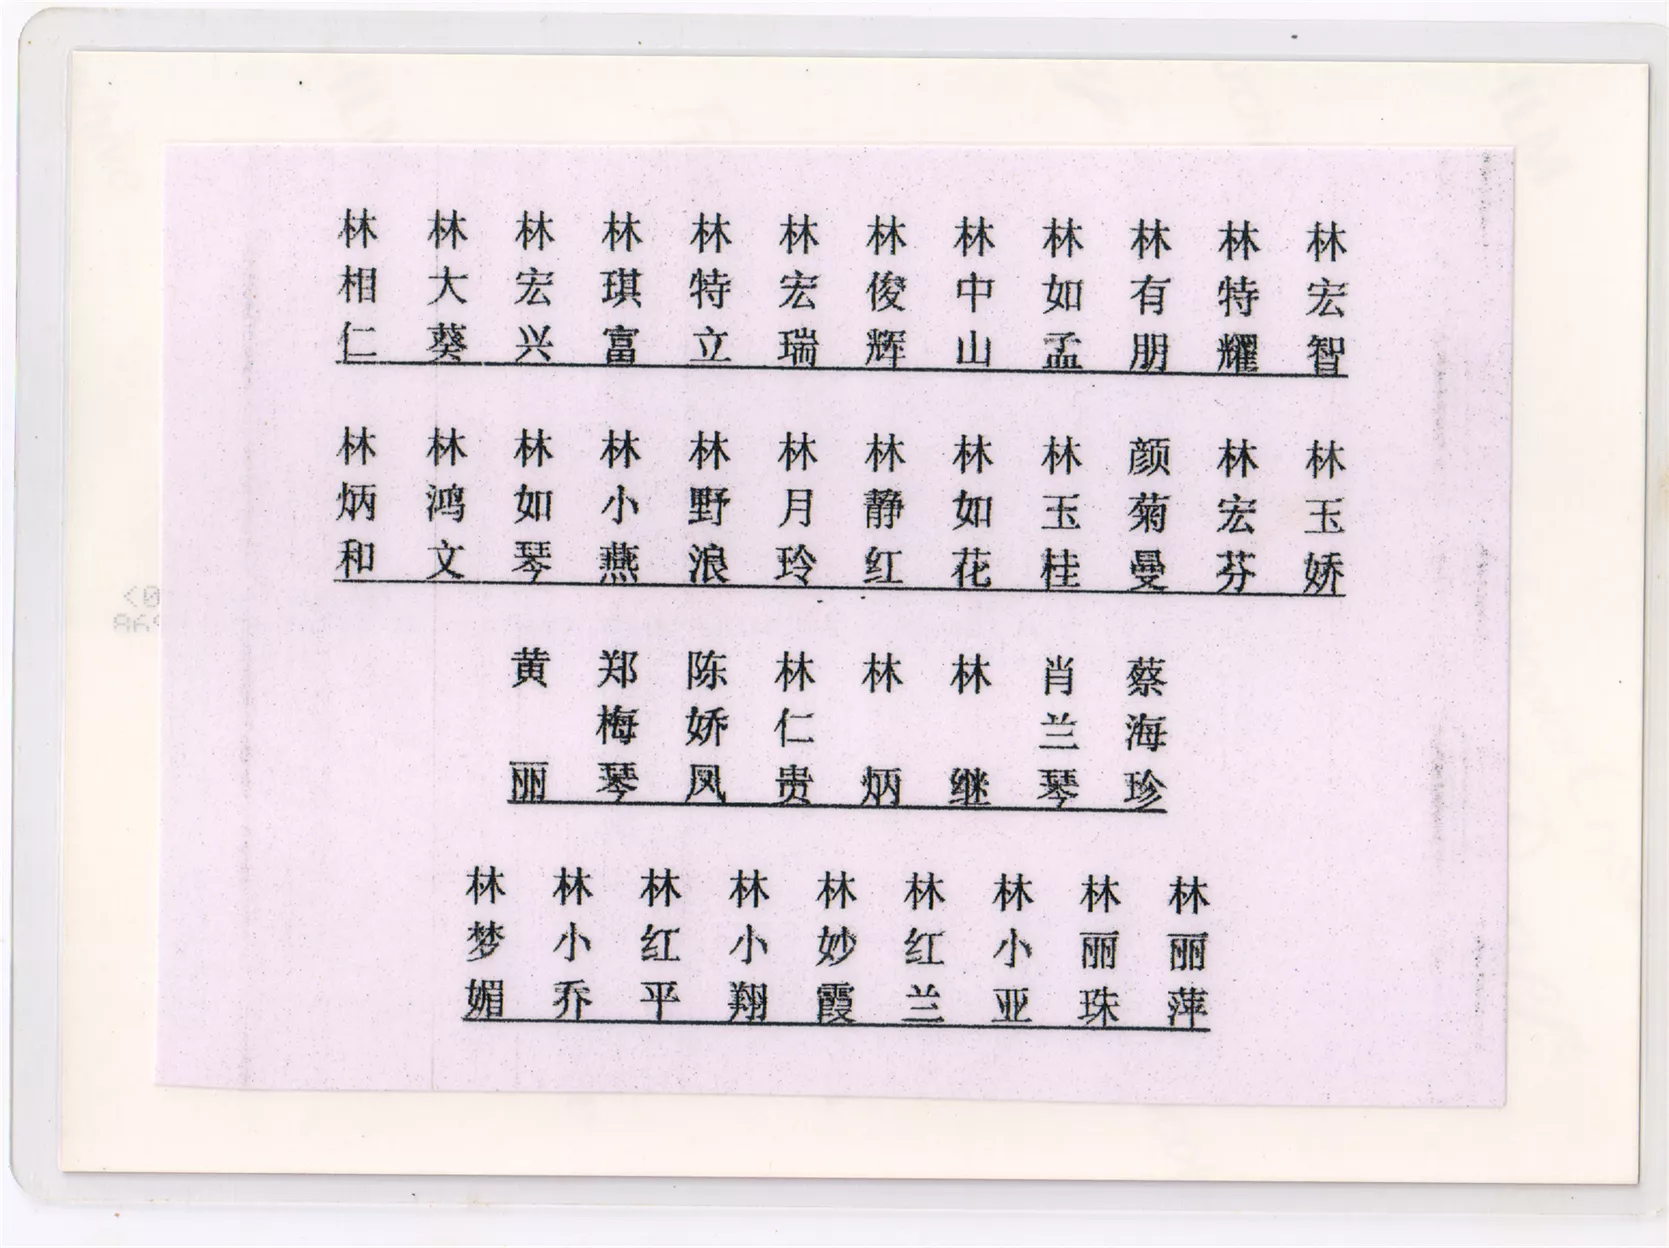 林相仁 林大葵 林宏兴 林琪富 林特立 林宏瑞 林俊辉 林中山 林如孟 林有朋 林特耀 林宏智
林炳和 林鸿文 林如琴 林小燕 林野浪 林月玲 林静红 林如花 林玉桂 颜菊曼 林宏芬 林玉娇
黄丽 郑梅琴 陈娇凤 林仁贵 林炳 林继 肖兰琴 蔡海珍
林梦媚 林小乔 林红平 林小翔 林妙霞 林红兰 林小亚 林丽珠 林丽萍